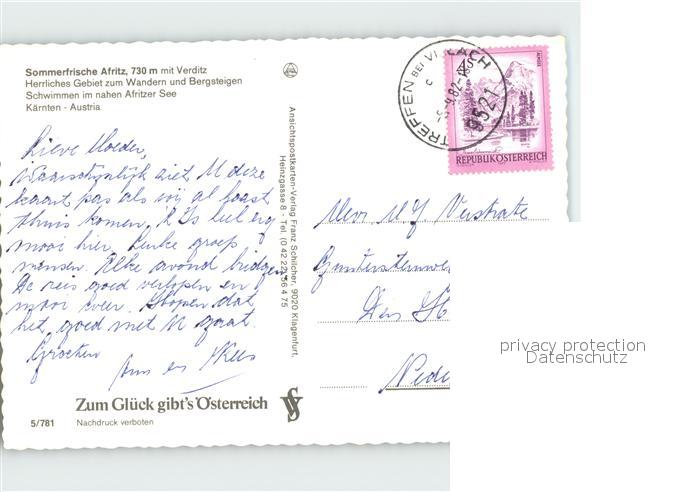 Sommerfrische Afritz, 730 m mit Verditz
Herrliches Gebiet zum Wandern und Bergsteigen
Schwimmen im nahen Afritzer See
Kärnten - Austria
Lieve Moeder,
Waarschijnlijk ziet U deze
kaart pas als wij al haast
thuis komen. 't Is heel erg
mooi hier. Leuke groep
mensen. Elke avond bridgen
De reis goed verlopen en
mooi weer. Hopen dat
het goed met U gaat.
Groeten
en Kees
Zum Glück gibt's Österreich
5/781
Nachdruck verboten
Ansichtspostkarten-Verlag Franz Schilcher, 9020 Klagenfurt,
Heinzgasse 8 - Tel. (0 42 22) 56 4 75
TREFFEN BEI VILLACH
9521
REPUBLIK ÖSTERREICH
Mevr. Verstrate
Den
privacy protection
Datenschutz